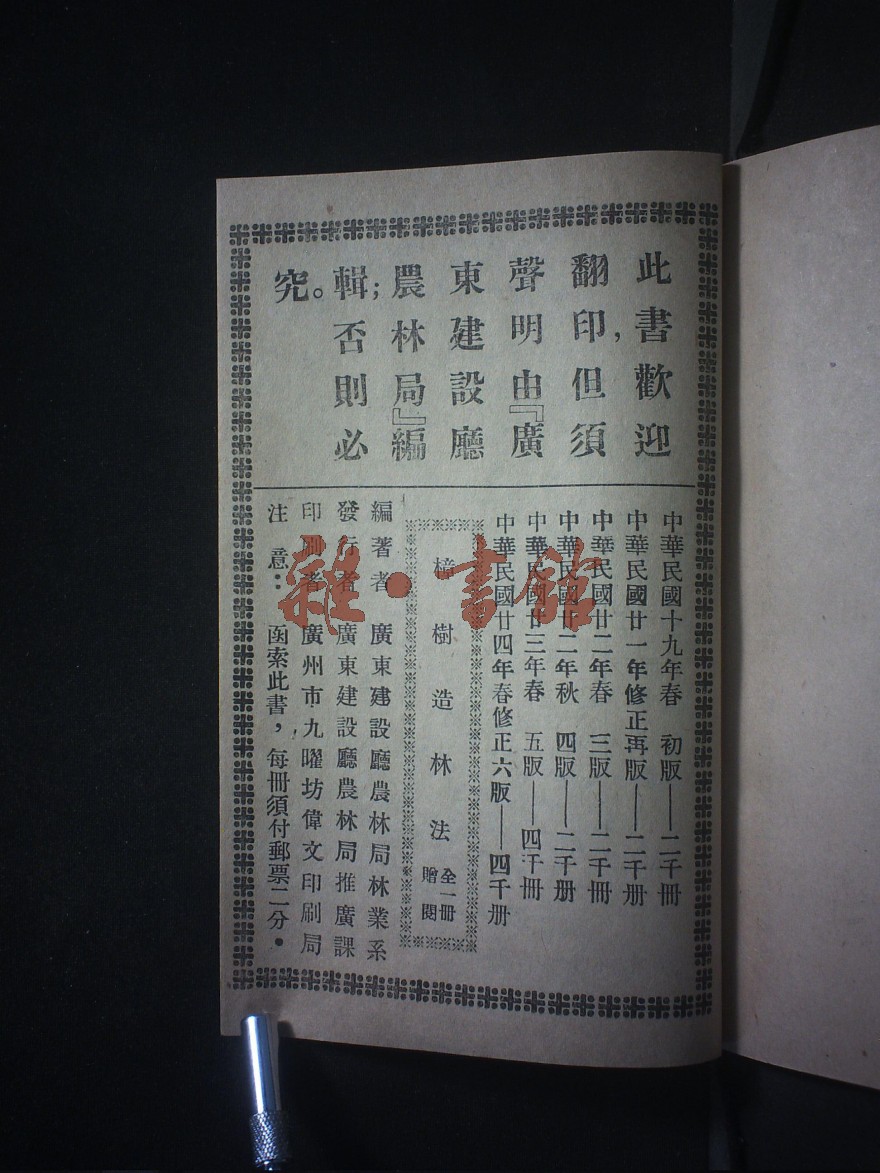 此書歡迎
翻印，但須
聲明由『廣
東建設廳
農林局』編
輯；否則必
究。
中華民國十九年春 初版——二千冊
中華民國廿一年修正再版——二千册
中華民國廿二年春 三版——二千冊
中華民國廿二年秋 四版——二千册
中華民國廿三年春 五版——四千冊
中華民國廿四年春修正六版——四千册
樟樹造林法 全一冊
贈閱
編著者 廣東建設廳農林局林業系
發行者 廣東建設廳農林局推廣課
印刷者 廣州市九曜坊偉文印刷局
注意： 函索此書，每冊須付郵票二分。
雜·書館